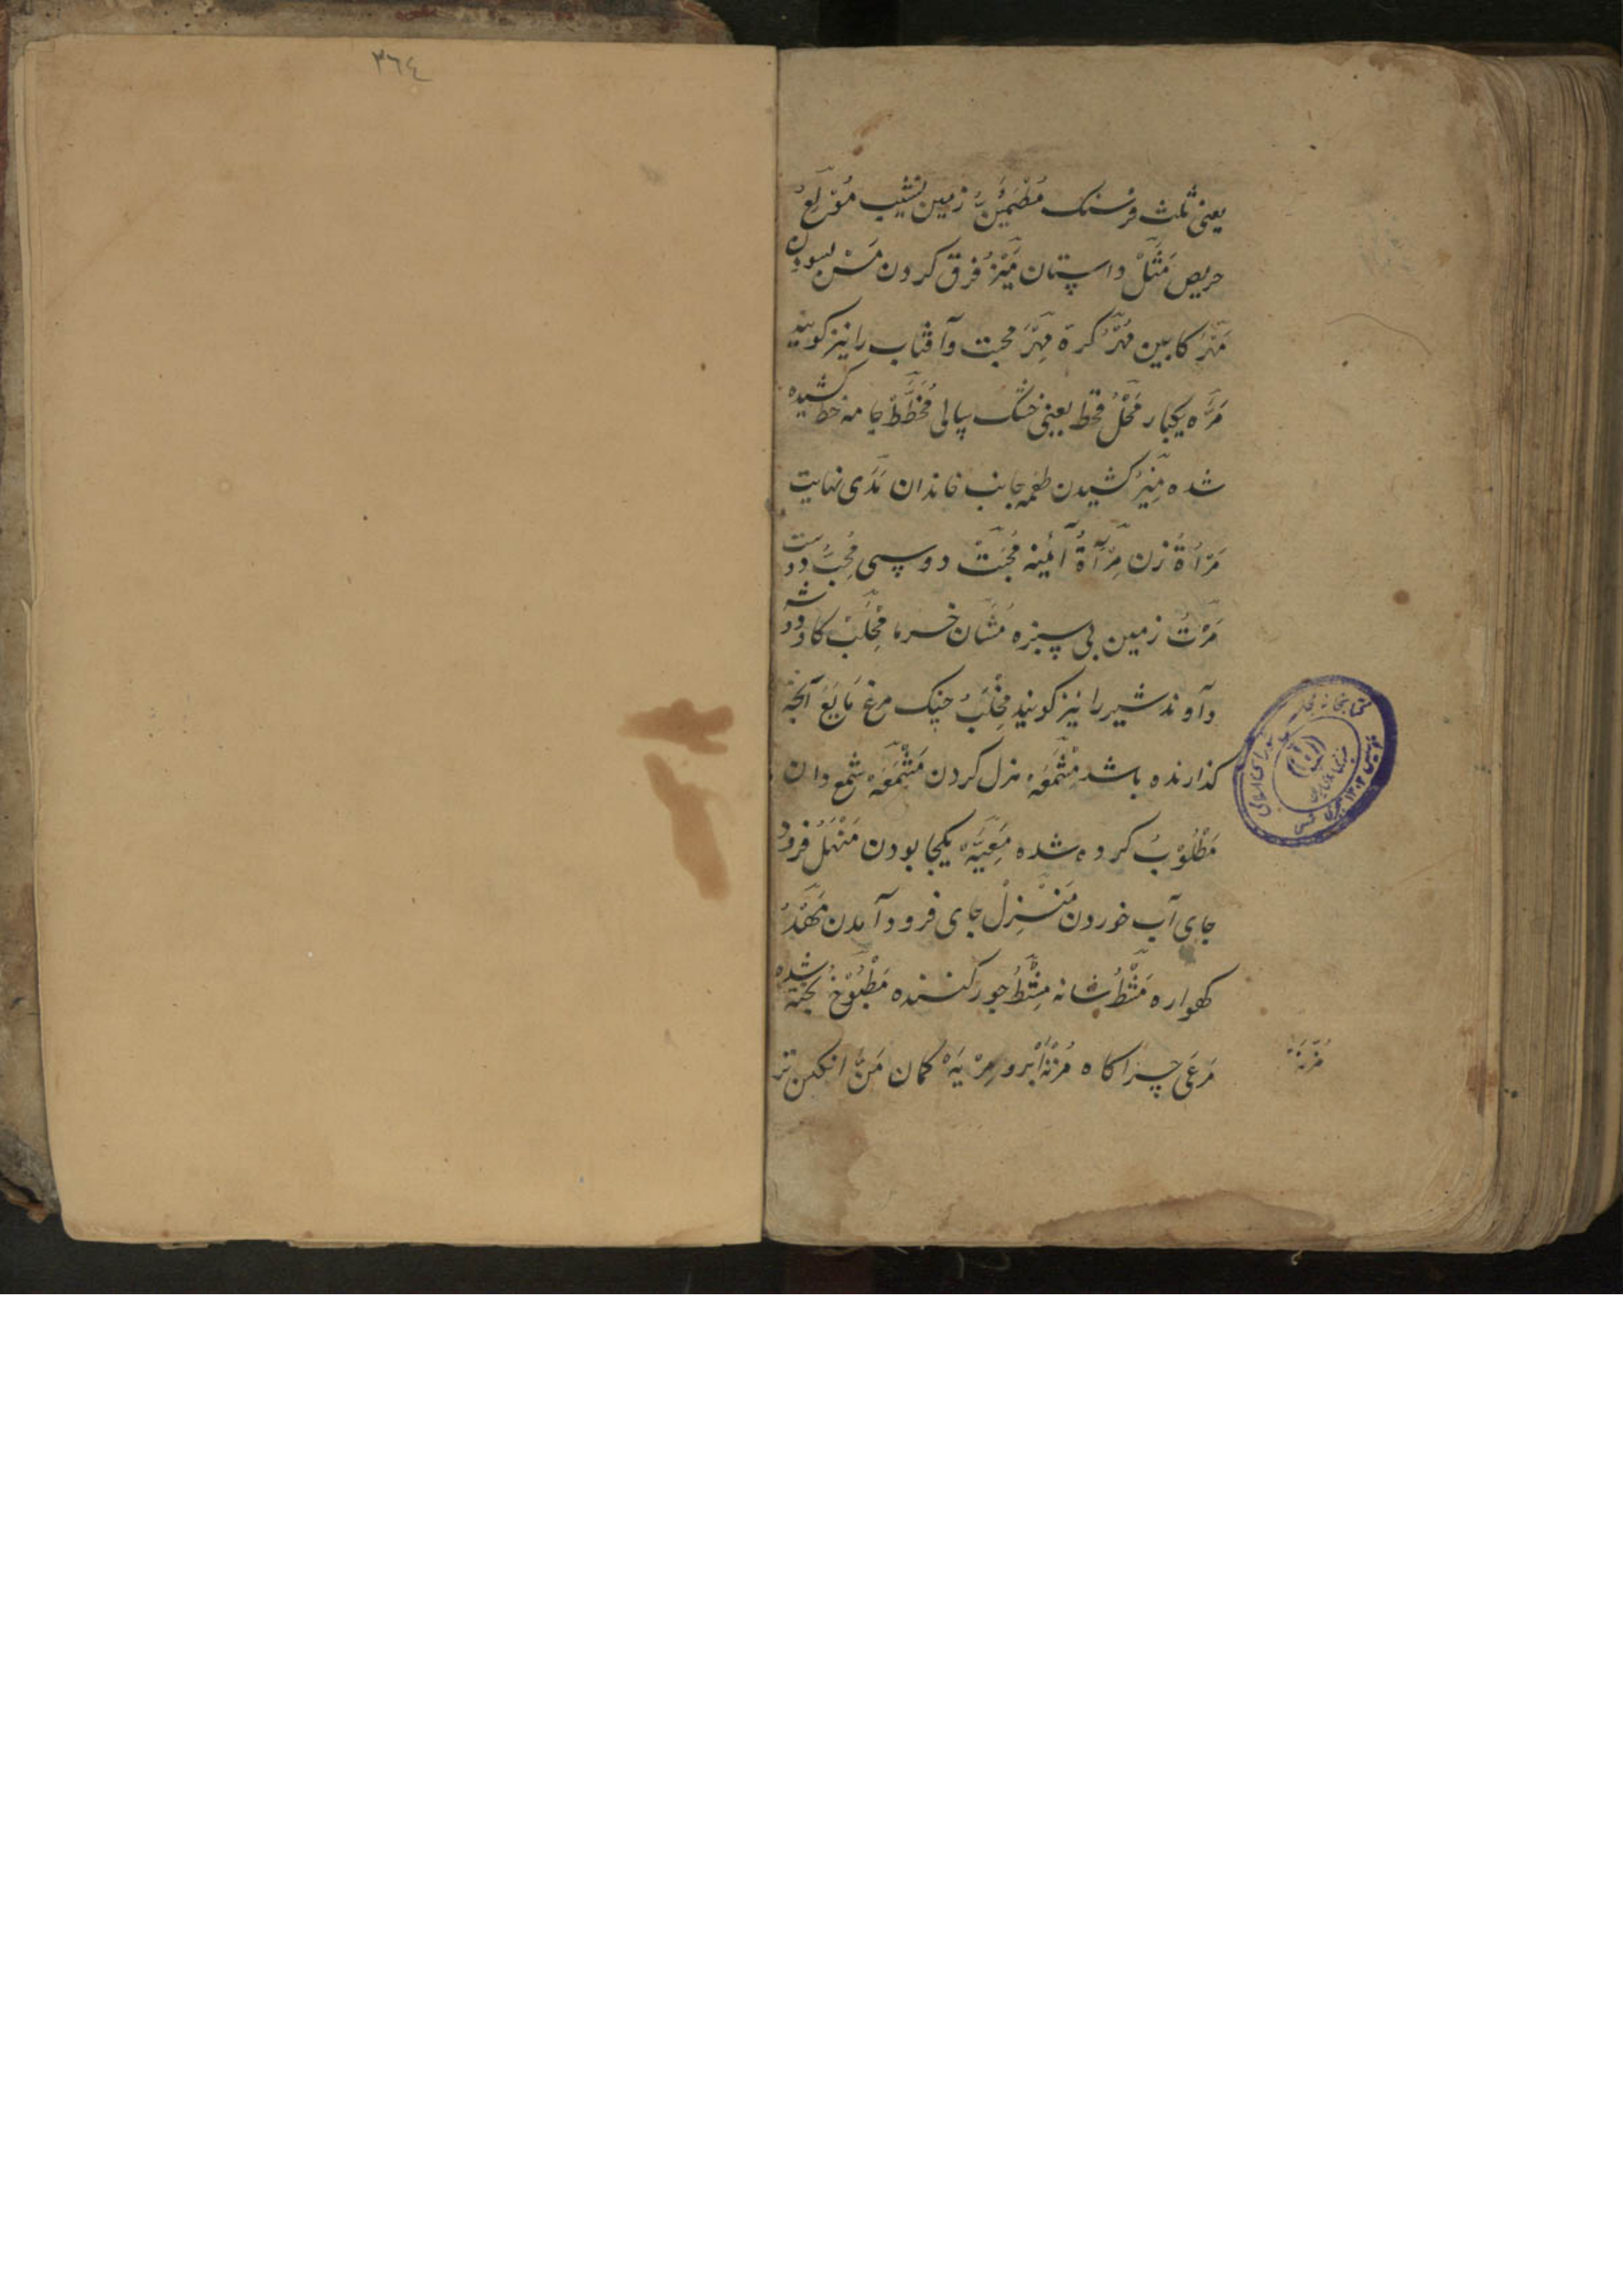 یعنی ثلث فرسنک مُطْمَئِنّ زمین نشیب مُوْلَعُ
حریص مَثَلْ داستان مَیْزُ فرق کردن مَسّ بسودن
مَهْرُ کابین مُهْرُ کرة مِهْرَ محبت وآفتاب را نیز کویند
مَرَّه یکبار مَحْلُ قحط یعنی خشک سالی مُخَطَّطْ جامه خط کشیده
شده کشیدن طعمه جانب خاندان مَدَی نهایت
مَرْاَةُ زن مِرْآةُ آئینه مَحَبَّتْ دوستی مُحِبُّ دوست
مَرْتُ زمین بی سبزه مُشَان خرما مِحْلَبْ کاودوشه
وآوند شیر را نیز کویند مِخْلَبُ چنک مرغ مَایَعْ آنچه
کذارنده باشد مَشْمَعَه هزل کردن مَشْمَعَه شمع دان
مَطْلُوْبُ کرده شده مَعِیَّه یکجا بودن مَنْهَلُ فرود
جای آب خوردن مَنْزِلْ جای فرود آمدن مَهْدُ
کهواره مُشْطُ شانه جور کننده مَطْبُوْخُ پخته شده
مَرْعَی چراکاه مُزْنَه ابر و مِرْیَه کمان مَنُّ انکبین تر
مُزْنَه
٣٦٤